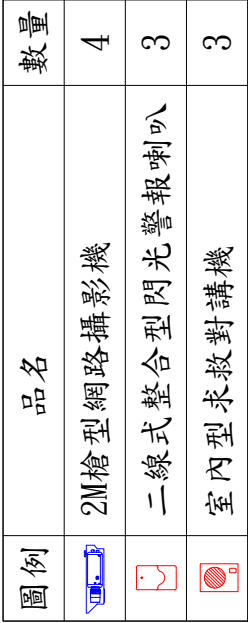 圖例 品名 數量
2M槍型網路攝影機 4
二線式整合型閃光警報喇叭 3
室內型求救對講機 3